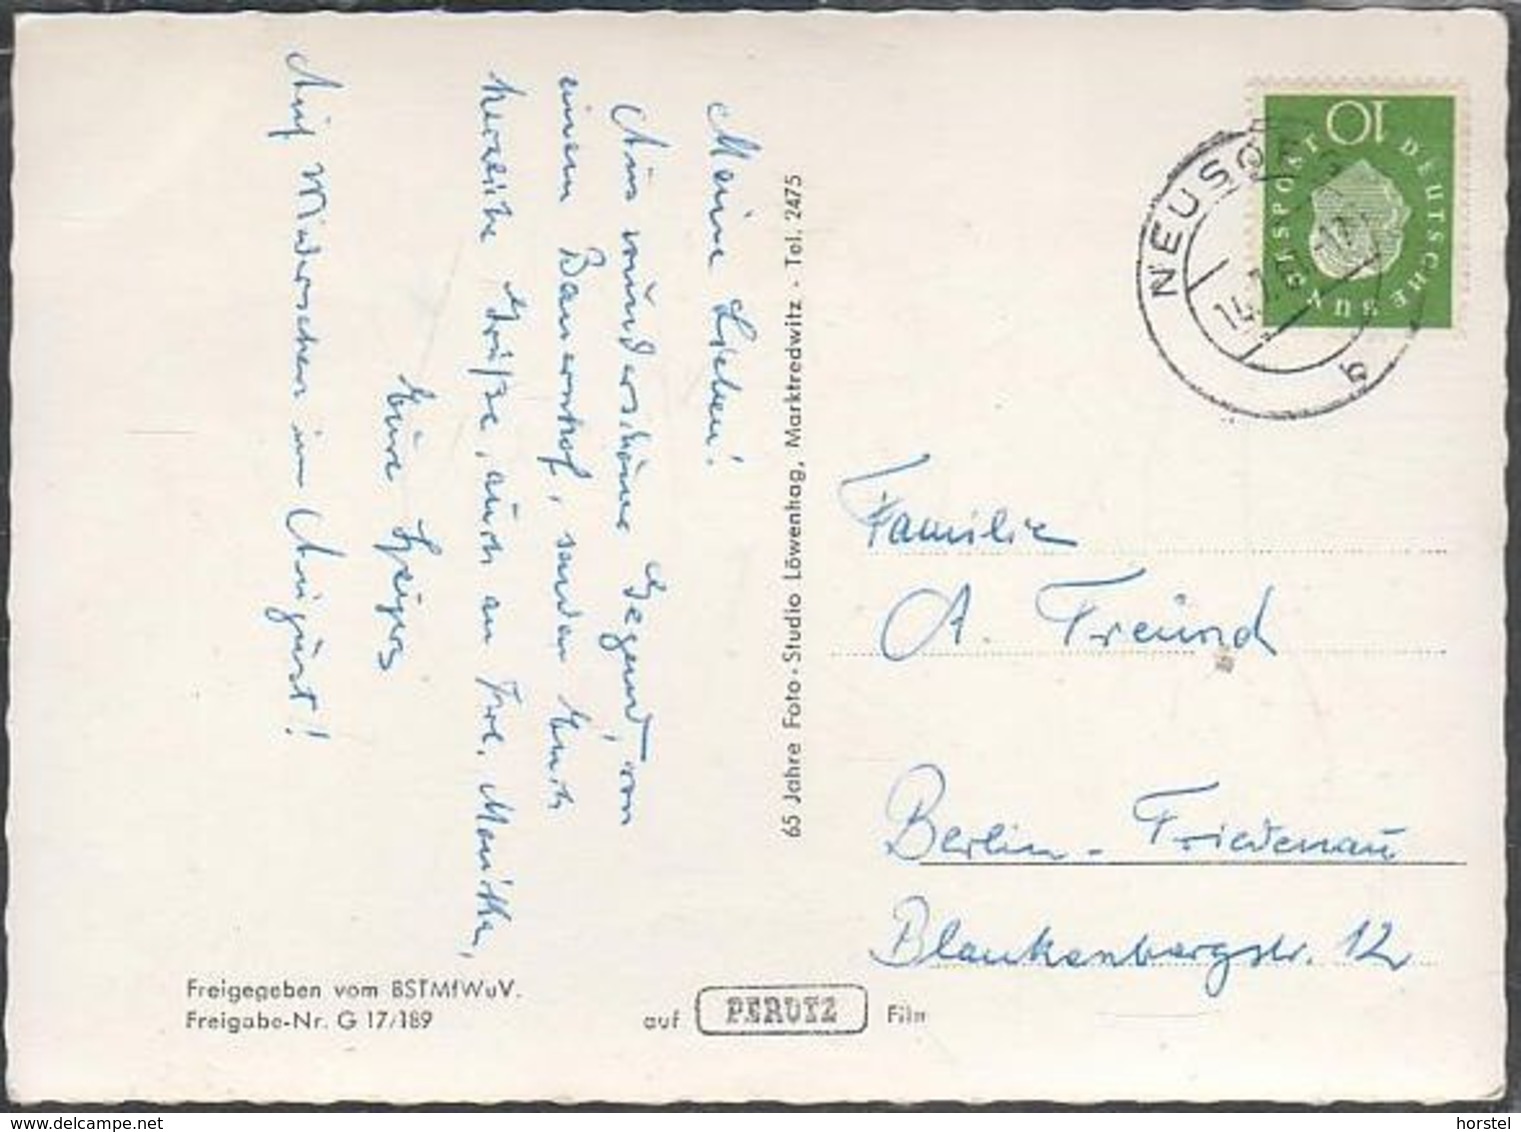 Meine Lieben!
Aus wunderschöne Gegend, von
einem Bauernhof, senden Euch
herzliche Grüße, auch an Frl. Monika,
Eure Geigers
Auf Wiedersehen im August!
65 Jahre Foto - Studio Löwenhag, Marktredwitz - Tel. 2475
10
DEUTSCHE BUNDESPOST
NEUSO
14.
b
Familie
A. Freund
Berlin-Friedenau
Blankenbergstr. 12
Freigegeben vom BSTMfWuV.
Freigabe-Nr. G 17/189
auf PERUTZ Film
horstel